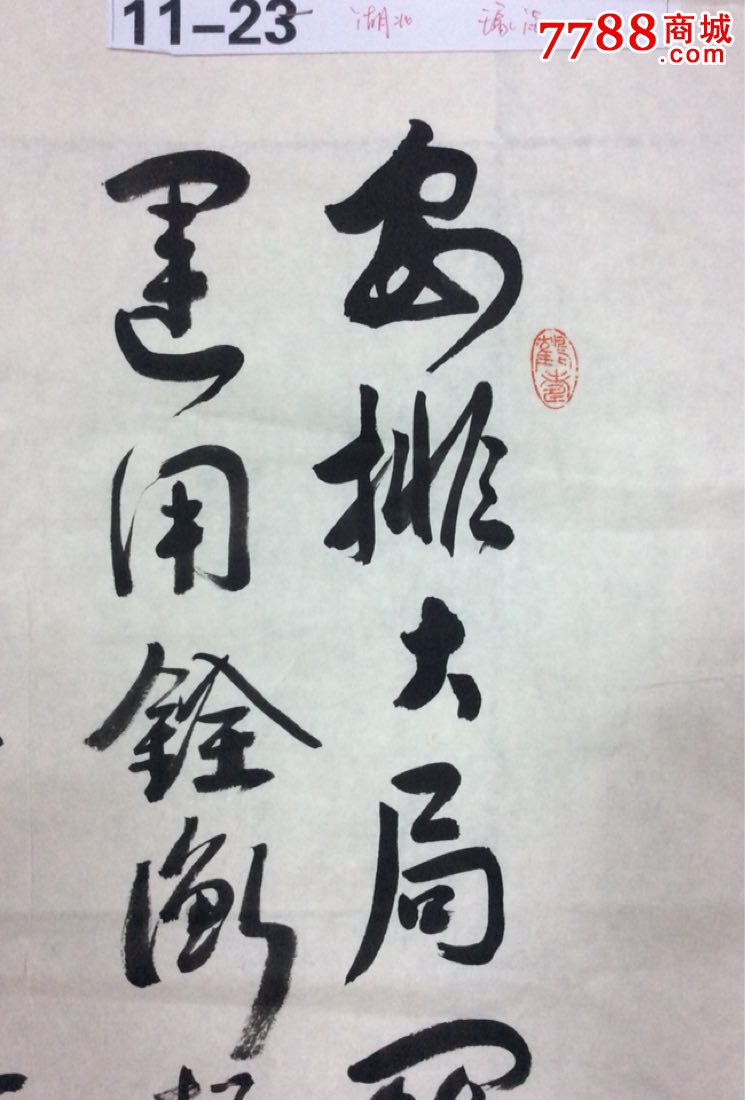 11-23 湖北
7788商城
.com
安排大局
運用銓衡